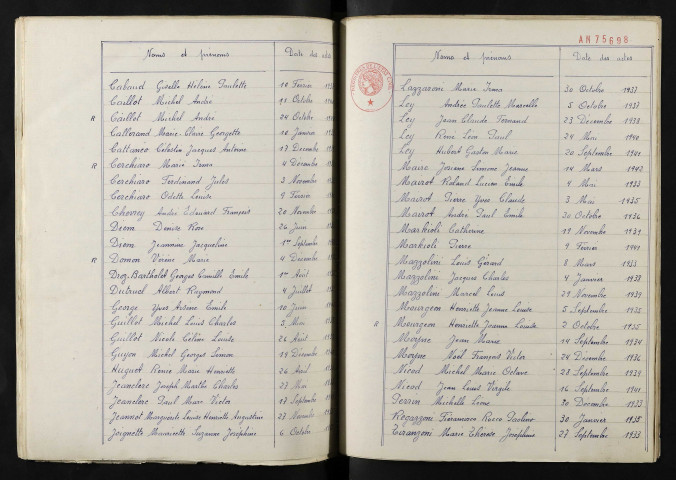 Noms et prénoms Date des actes
Cabaud Giselle Hélène Paulette 10 Février
Caillot Michel André 11 Octobre
R Caillot Michel André 24 Octobre
Callerand Marie-Claire Georgette 10 Janvier
Cattanéo Célestin Jacques Antoine 17 Décembre
R Cerchiaro Marie Irma 4 Décembre
Cerchiaro Ferdinand Jules 3 Novembre
Cerchiaro Odette Louise 9 Février
Chevrey André Edouard François 20 Novembre
Drom Denise Rose 26 Juin
Drom Jeannine Jacqueline 1er Septembre
R Domon Marie 4 Décembre
Droz-Bartholet Georges Camille Emile 1er Août
Dutruel Albert Raymond 4 Juillet
George Yves Arsène Emile 10 Juin
Guillot Michel Louis Charles 3 Mai
Guillot Nicole Céline Louise 26 Août
Guyon Michel Georges Simon 19 Décembre
Huguet Renée Marie Henriette 26 Août
Jeanclerc Joseph Marthe Charles 27 Mai
Jeanclerc Paul Marc Victor 17 Septembre
Jeannot Marguerite Louise Henriette Augustine 23 Novembre
Joignette Mauricette Suzanne Joséphine 6 Octobre
AN 75698
Noms et prénoms Date des actes
Lazzaroni Marie Irma 30 Octobre 1937
Ley Andrée Paulette Marcelle 5 Octobre 1937
Ley Jean Claude Fernand 23 Décembre 1938
Ley René Léon Paul 24 Mai 1940
Ley Hubert Gaston Marie 20 Septembre 1941
Maire Josiane Simone Jeanne 14 Mars 1942
Mairot Roland Lucien Emile 9 Mai 1933
Mairot Pierre Yves Claude 3 Mai 1935
Mairot André Paul Emile 30 Octobre 1936
Markioli Catherine 19 Novembre 1939
Markioli Pierre 9 Février 1941
Mazzolini Louis Gérard 8 Mars 1933
Mazzolini Jacques Charles 4 Janvier 1938
Mazzolini Marcel Louis 29 Novembre 1939
Mourgeon Henriette Jeanne Louise 5 Septembre 1935
R Mourgeon Henriette Jeanne Louise 2 Octobre 1935
Moyse Jean Marie 14 Septembre 1934
Moyse Noël François Victor 24 Décembre 1936
Nicod Michel Marie Octave 28 Septembre 1939
Nicod Jean Louis Virgile 16 Septembre 1941
Perrin Michelle Léone 30 Décembre 1933
Ragazzoni Francesco Rocco Paolino 30 Janvier 1935
Taranzoni Marie Thérèse Joséphine 27 Septembre 1933